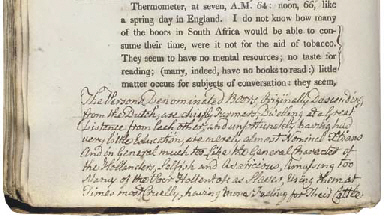 Thermometer, at seven, A.M. 64: noon, 66, like
a spring day in England. I do not know how many
of the boors in South Africa would be able to con-
sume their time, were it not for the aid of tobacco.
They seem to have no mental resources; no taste for
reading; (many, indeed, have no books to read:) little
matter occurs for subjects of conversation: they seem,
The Persons Denominated Boors, Originally Descending
from the Dutch, are chiefly Farmers, Dwelling at a Great
Distance from each other, and unfortunately having had
very little Education, are merely almost Nominal Christians
And in General much too like the General character of
the Hollanders, Selfish and Avaricious,
Many of the Poor Hottentots as Slaves, using them at
Times most Cruelly, having more feeling for Their Cattle